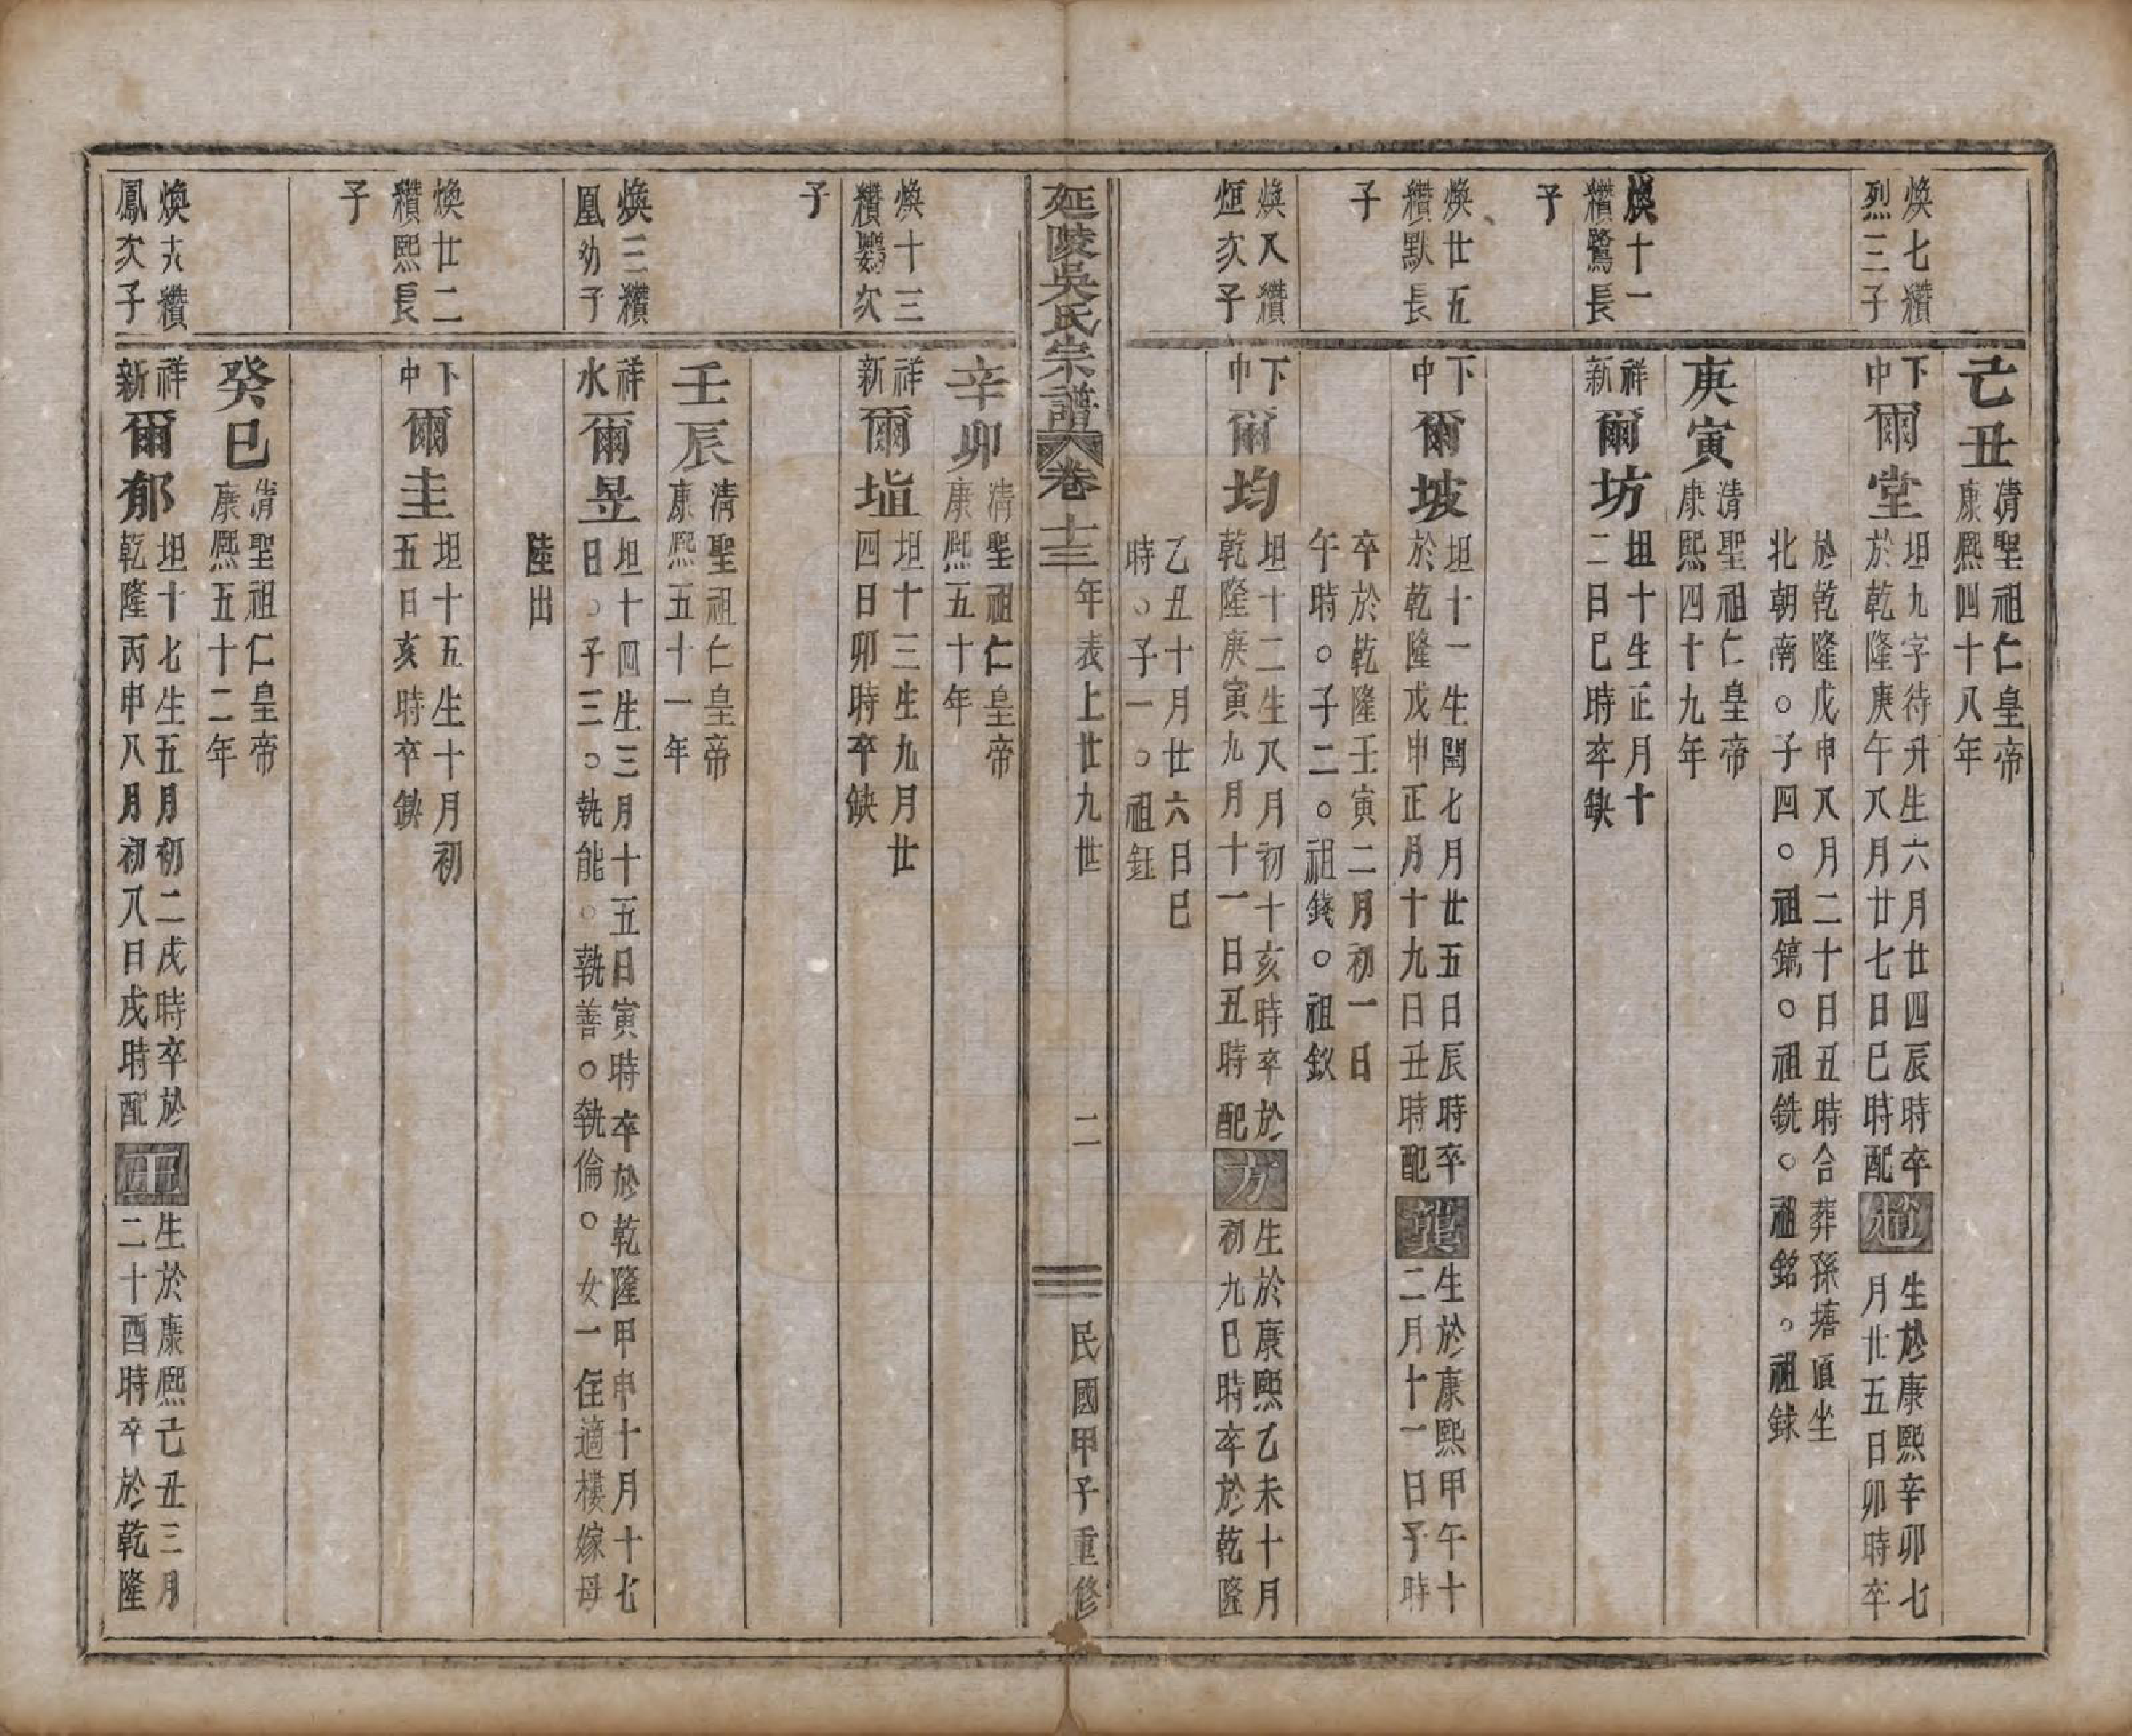 己丑
清聖祖仁皇帝
康熙四十八年
煥七纘
烈三子
下
中
爾堂
坦九字待升生六月廿四辰時卒
於乾隆庚午八月廿七日巳時配
趙
生於康熙辛卯七
月廿五日卯時卒
於乾隆戊申八月二十日丑時合葬孫塘頂坐
北朝南○子四○祖鎬○祖銑○祖銘○祖銶
庚寅
清聖祖仁皇帝
康熙四十九年
煥十一
纘鷺長
子
祥
新
爾坊
坦十生正月十
二日巳時卒缺
煥廿五
纘默長
子
下
中
爾坡
坦十一生閏七月廿五日辰時卒
於乾隆戊申正月十九日丑時配
龔
生於康熙甲午十
二月十一日子時
卒於乾隆壬寅二月初一日
午時○子二○祖錢○祖欽
煥八纘
烜次子
下
中
爾均
坦十二生八月初十亥時卒於
乾隆庚寅九月十一日丑時配
方
生於康熙乙未十月
初九巳時卒於乾隆
乙丑十月廿六日巳
時○子一○祖鈺
延陵吳氏宗譜
卷十三
年表上廿九世
二
民國甲子重修
辛卯
清聖祖仁皇帝
康熙五十年
煥十三
纘鸚次
子
祥
新
爾塤
坦十三生九月廿
四日卯時卒缺
壬辰
清聖祖仁皇帝
康熙五十一年
煥三纘
凰幼子
祥
水
爾昱
坦十四生三月十五日寅時卒於乾隆甲申十月十七
日○子三○執能○執善○執倫○女一住適樓嫁母
陸出
煥廿二
纘熙長
子
下
中
爾圭
坦十五生十月初
五日亥時卒缺
癸巳
清聖祖仁皇帝
康熙五十二年
煥六纘
鳳次子
祥
新
爾郁
坦十七生五月初二戌時卒於
乾隆丙申八月初八日戌時配
王
生於康熙己丑三月
二十酉時卒於乾隆